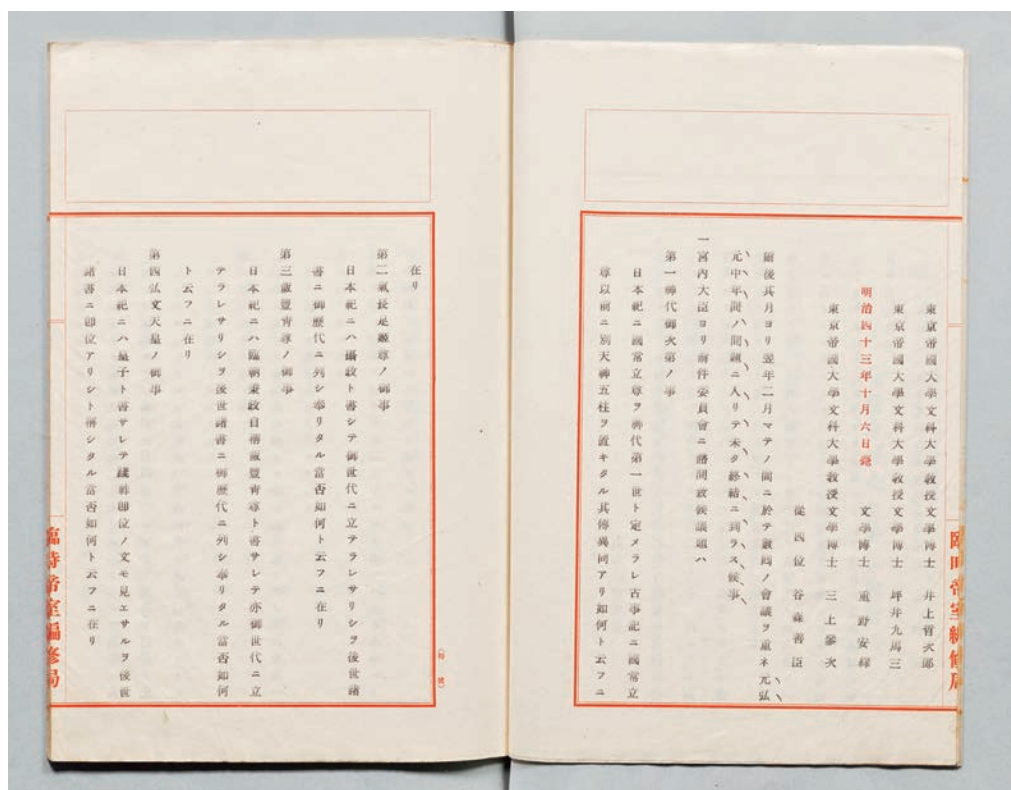 東京帝國大學文科大學教授文學博士　井上哲次郎
東京帝國大學文科大學教授文學博士　坪井九馬三
明治四十三年十月六日薨　文學博士　重野安繹
東京帝國大學文科大學教授文學博士　三上參次
從四位　谷森善臣
爾後其月ヨリ翌年二月マテノ間ニ於テ數囘ノ會議ヲ重ネ元弘
元中年間ハ問題ニ入リテ未タ終結ニ到ラス候事
一宮內大臣ヨリ前件委員會ニ諮問致候議題ハ
第一神代御次第ノ事
日本紀ニ國常立尊ヲ神代第一世ト定メラレ古事記ニ國常立
尊以前ニ別天神五柱ヲ置キタル其傳異同アリ如何ト云フニ
臨時帝室編修局
在リ
第二氣長足姬尊ノ御事
日本紀ニハ攝政ト書シテ御世代ニ立テラレサリシヲ後世諸
書ニ御歷代ニ列シ奉リタル當否如何ト云フニ在リ
第三飯豐靑尊ノ御事
日本紀ニハ臨朝秉政自稱飯豐靑尊ト書サレテ亦御世代ニ立
テラレサリシヲ後世諸書ニ御歷代ニ列シ奉リタル當否如何
ト云フニ在リ
第四弘文天皇ノ御事
日本紀ニハ皇子ト書サレテ踐祚卽位ノ文モ見エサルヲ後世
諸書ニ卽位アリシト稱シタル當否如何ト云フニ在リ
臨時帝室編修局